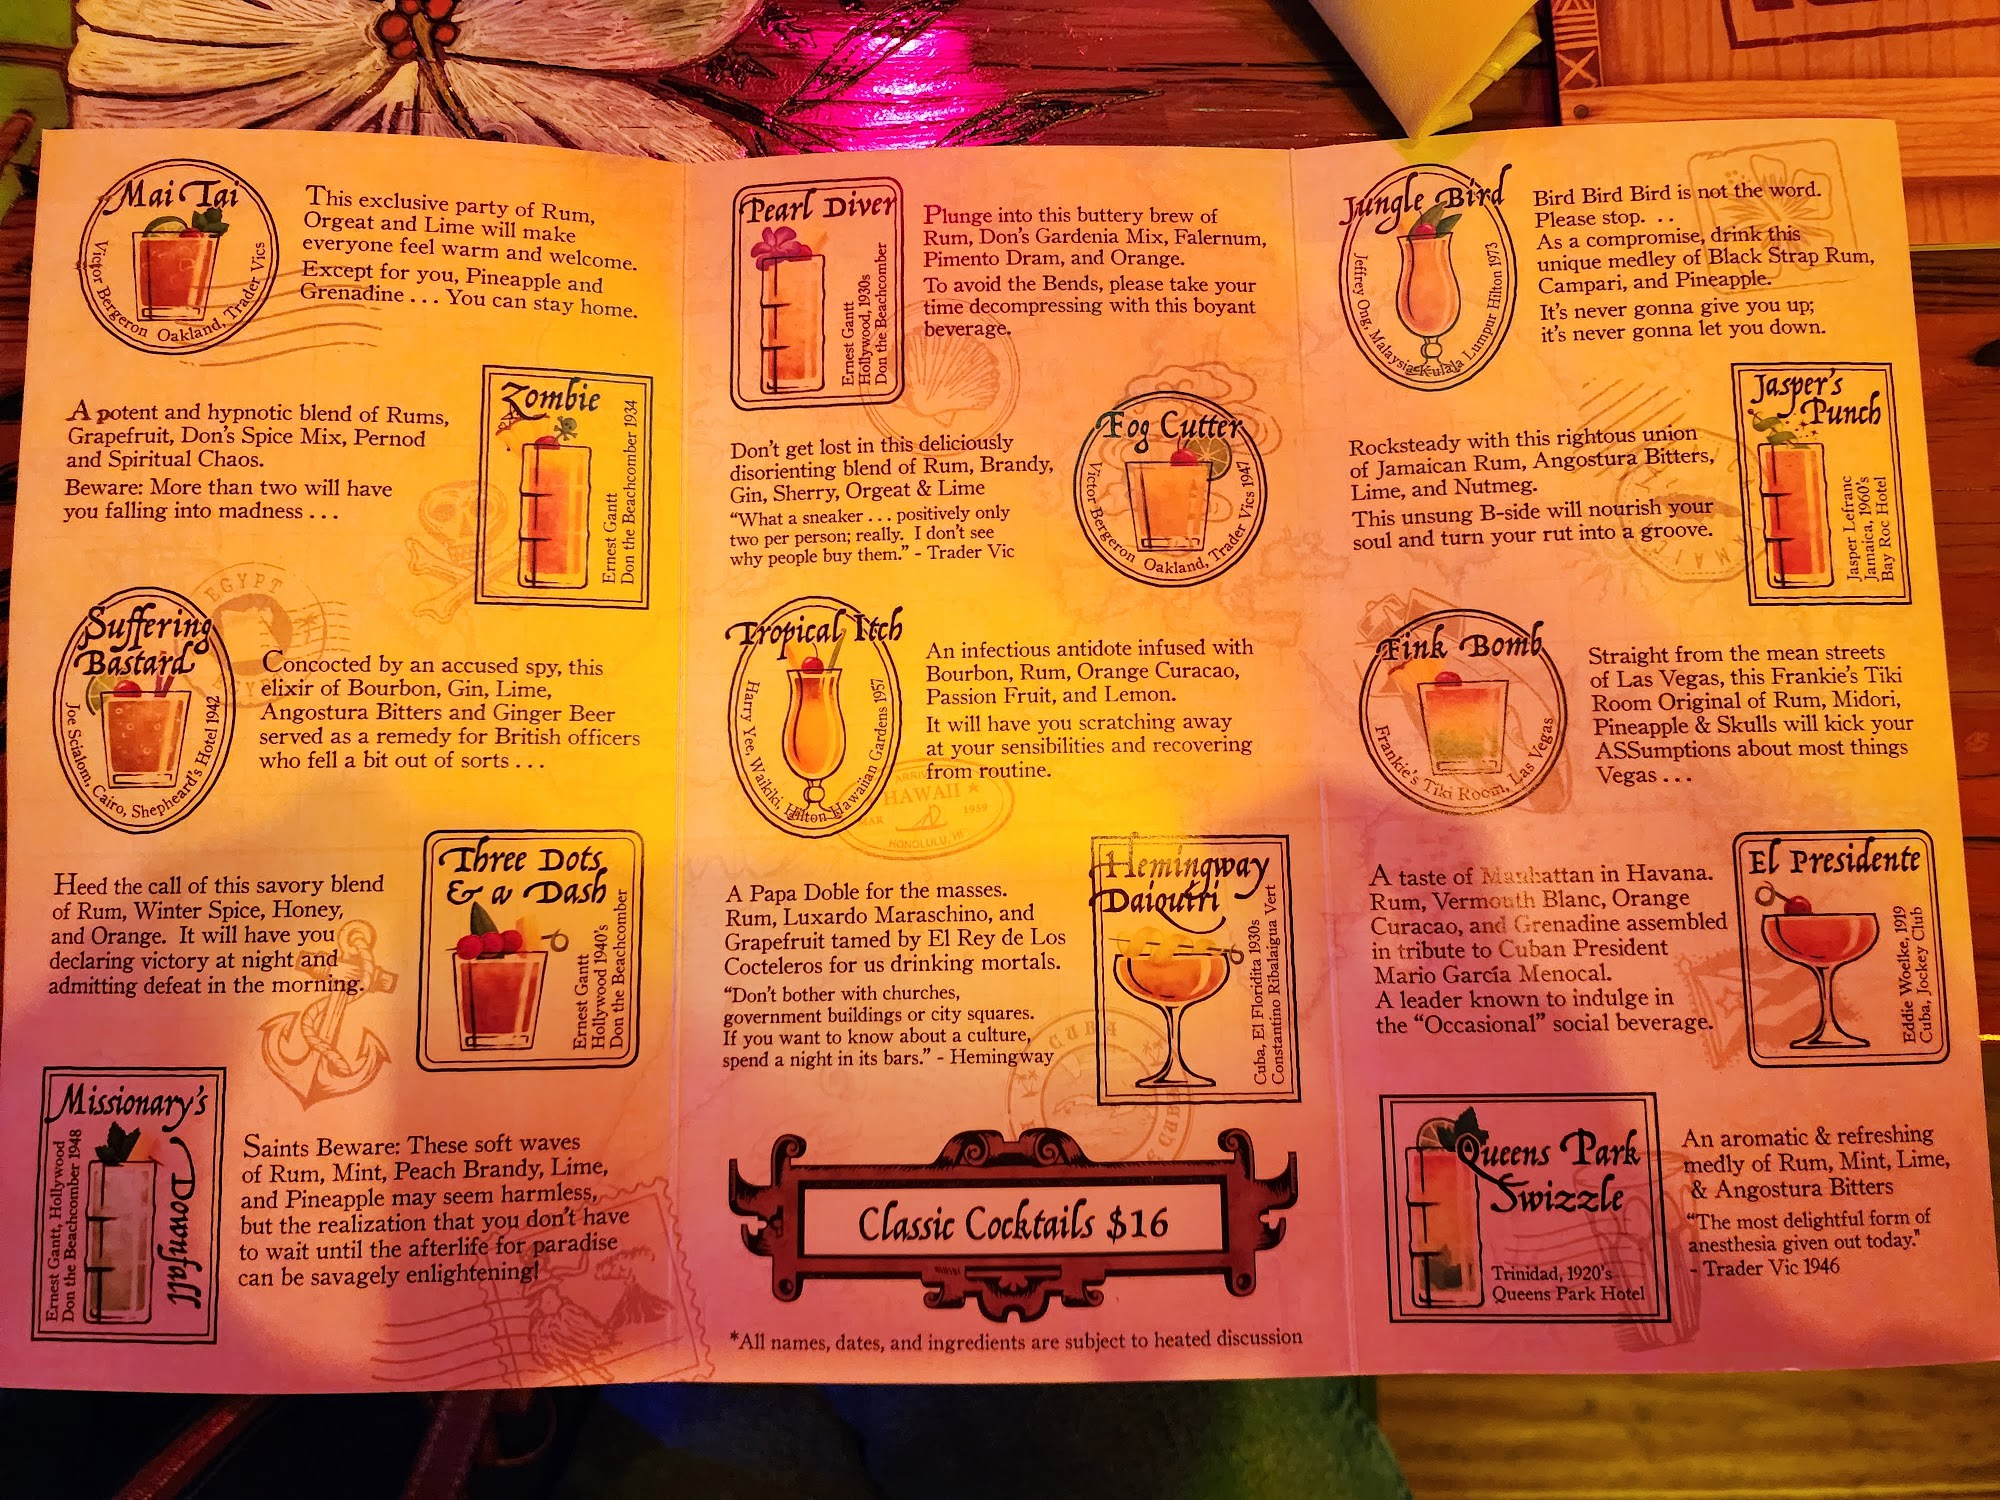 Mai Tai
Victor Bergeron Oakland, Trader Vics
This exclusive party of Rum,
Orgeat and Lime will make
everyone feel warm and welcome.
Except for you, Pineapple and
Grenadine . . . You can stay home.
Zombie
Ernest Gantt
Don the Beachcomber 1934
A potent and hypnotic blend of Rums,
Grapefruit, Don's Spice Mix, Pernod
and Spiritual Chaos.
Beware: More than two will have
you falling into madness . . .
EGYPT
Suffering
Bastard
Joe Scialom, Cairo, Shepheard's Hotel 1942
Concocted by an accused spy, this
elixir of Bourbon, Gin, Lime,
Angostura Bitters and Ginger Beer
served as a remedy for British officers
who fell a bit out of sorts . . .
Three Dots
& a Dash
Ernest Gantt
Hollywood 1940's
Don the Beachcomber
Heed the call of this savory blend
of Rum, Winter Spice, Honey,
and Orange. It will have you
declaring victory at night and
admitting defeat in the morning.
Missionary's
Downfall
Ernest Gantt, Hollywood
Don the Beachcomber 1948
Saints Beware: These soft waves
of Rum, Mint, Peach Brandy, Lime,
and Pineapple may seem harmless,
but the realization that you don't have
to wait until the afterlife for paradise
can be savagely enlightening!
Pearl Diver
Ernest Gantt
Hollywood, 1930s
Don the Beachcomber
Plunge into this buttery brew of
Rum, Don's Gardenia Mix, Falernum,
Pimento Dram, and Orange.
To avoid the Bends, please take your
time decompressing with this boyant
beverage.
Fog Cutter
Victor Bergeron Oakland, Trader Vics 1947
Don't get lost in this deliciously
disorienting blend of Rum, Brandy,
Gin, Sherry, Orgeat & Lime
"What a sneaker . . . positively only
two per person; really. I don't see
why people buy them." - Trader Vic
Tropical Itch
Harry Yee, Waikiki, Hilton Hawaiian Gardens 1957
An infectious antidote infused with
Bourbon, Rum, Orange Curacao,
Passion Fruit, and Lemon.
It will have you scratching away
at your sensibilities and recovering
from routine.
HAWAII
MAR
1959
HONOLULU, HI
Hemingway
Daiquiri
Cuba, El Floridita 1930s
Constantino Ribalaigua Vert
A Papa Doble for the masses.
Rum, Luxardo Maraschino, and
Grapefruit tamed by El Rey de Los
Cocteleros for us drinking mortals.
"Don't bother with churches,
government buildings or city squares.
If you want to know about a culture,
spend a night in its bars." - Hemingway
CUBA
Classic Cocktails $16
*All names, dates, and ingredients are subject to heated discussion
Jungle Bird
Jeffrey Ong, Malaysia Kulala Lumpur Hilton 1973
Bird Bird Bird is not the word.
Please stop. . .
As a compromise, drink this
unique medley of Black Strap Rum,
Campari, and Pineapple.
It's never gonna give you up;
it's never gonna let you down.
Jasper's
Punch
Jasper Lefranc
Jamaica, 1960's
Bay Roc Hotel
Rocksteady with this rightous union
of Jamaican Rum, Angostura Bitters,
Lime, and Nutmeg.
This unsung B-side will nourish your
soul and turn your rut into a groove.
Fink Bomb
Frankie's Tiki Room, Las Vegas
Straight from the mean streets
of Las Vegas, this Frankie's Tiki
Room Original of Rum, Midori,
Pineapple & Skulls will kick your
ASSumptions about most things
Vegas . . .
El Presidente
Eddie Woelke, 1919
Cuba, Jockey Club
A taste of Manhattan in Havana.
Rum, Vermouth Blanc, Orange
Curacao, and Grenadine assembled
in tribute to Cuban President
Mario García Menocal.
A leader known to indulge in
the "Occasional" social beverage.
Queens Park
Swizzle
Trinidad, 1920's
Queens Park Hotel
An aromatic & refreshing
medly of Rum, Mint, Lime,
& Angostura Bitters
"The most delightful form of
anesthesia given out today."
- Trader Vic 1946